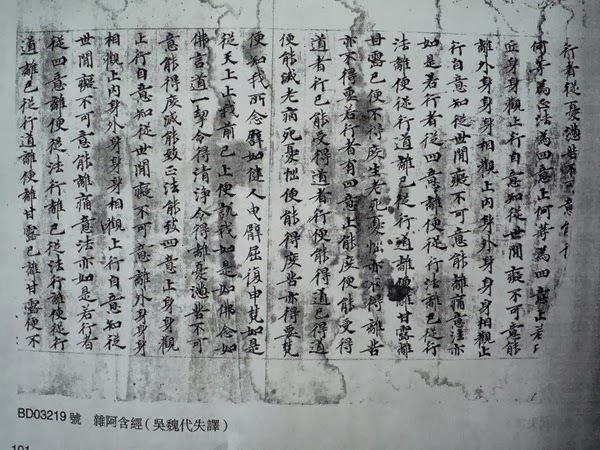 行者從憂懣苦不可意
何等為正法為四意止何等為四意止若
丘身身觀止行自意知從世間癡不可意能
離外身身身相觀止內身外身身身相觀止
行自意知從世間癡不可意能離痛意法亦
如是若行者從四意離便從行法離已從行
法離便從行道離已從行道離便離甘露離
甘露已便不得度生老死憂惱亦不得離苦
亦不得要若行者有四意止能度便能受得
道者行已能受得道者行便能得道已得道
便能滅老病死憂惱便能得度苦亦得要梵
便知我所念臂如健人申臂屈復申梵如是
從天上止我前已止便說我如是如佛念如
佛言道一挈令得清淨令得離憂懣苦不可
意能得度滅能致正法能致四意止身身觀
止行自意知從世間癡不可意離外身身身
相觀止內身外身身身相觀止行自意知從
世間癡不可意能離痛意法亦如是若行者
從四意離便從法行離已從法行離便從行
道離已從行道離便離甘露已離甘露便不
BD03219號 雜阿含經（吳魏代失譯）
101